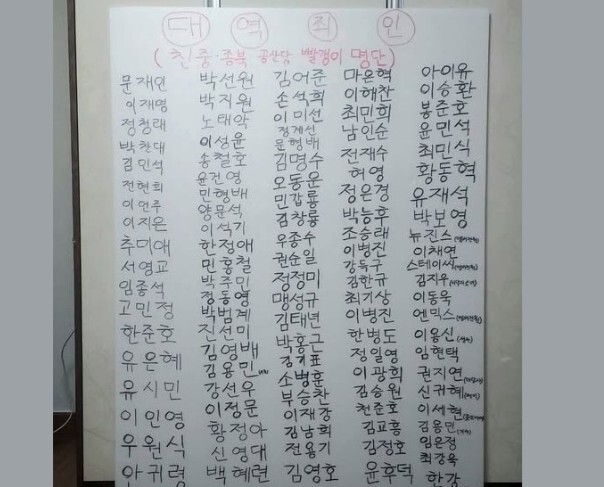 대 역 죄 인
(친중·종북 공산당 빨갱이 명단)
문재인
이재명
정청래
박찬대
김민석
전현희
이언주
이지은
추미애
서영교
임종석
고민정
한준호
유은혜
유시민
이인영
우원식
안귀령
박선원
박지원
노태악
이성윤
송철호
윤건영
민형배
양문석
이석기
한정애
민홍철
박주민
정동영
박범계
진선미
김영배
김용민
강선우
이정문
황정아
신영대
백혜련
김어준
손석희
이미선
정계선
문형배
김명수
오동운
민갑룡
김창룡
우종수
권순일
정정미
맹성규
김태년
박홍근
김기표
소병훈
부승찬
이재강
김남희
전용기
김영호
마은혁
이해찬
최민희
남인순
전재수
허영
정은경
박능후
조승래
이병진
강득구
김한규
최기상
이병진
한병도
정일영
이광희
김승원
천준호
김교흥
김정호
윤후덕
아이유
이승환
봉준호
윤민석
최민식
황동혁
유재석
박보영
뉴진스(멤버전원)
이채연
스테이씨(멤버전원)
김지우
이동욱
엔믹스(멤버전원)
이용신(성우)
임현택
권지연
신규혜
이세현
김용민
임은정
최강욱
한강